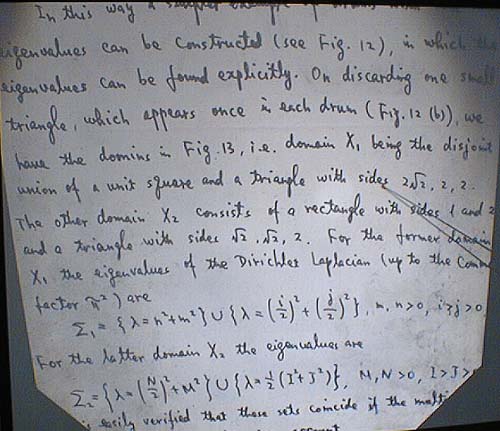 In this way a simpler example of drums with
eigenvalues can be constructed (see Fig. 12), in which the
eigenvalues can be found explicitly. On discarding one small
triangle, which appears once in each drum (Fig. 12 (b)), we
have the domins in Fig. 13, i.e. domain X₁ being the disjoint
union of a unit square and a triangle with sides 2√2, 2, 2.
The other domain X₂ consists of a rectangle with sides 1 and 2
and a triangle with sides √2, √2, 2. For the former domain
X₁ the eigenvalues of the Dirichlet Laplacian (up to the comm
factor π²) are
Σ₁ = {λ = n² + m²} ∪ {λ = (i/2)² + (j/2)²}, m, n > 0, i > j > 0,
For the latter domain X₂ the eigenvalues are
Σ₂ = {λ = (N/2)² + M²} ∪ {λ = ½(I² + J²)}, M, N > 0, I > J >
is easily verified that these sets coincide if the multi
account